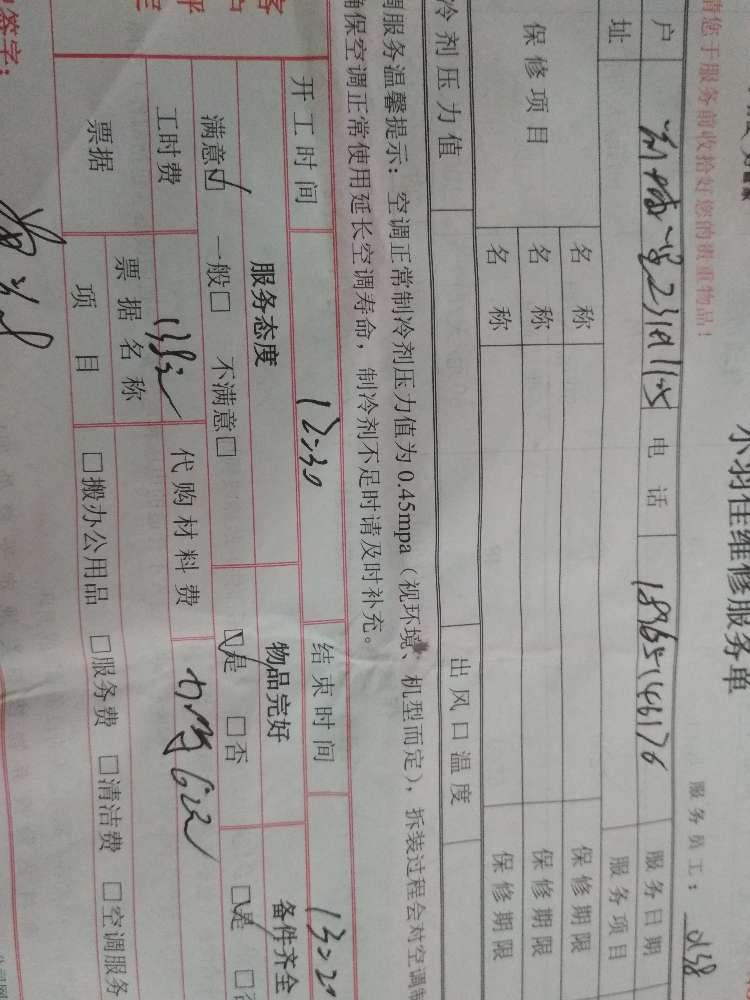 小羽佳维修服务单
请您于服务前收拾好您的贵重物品!
服务员工: 0158
户 电话 18965146176 服务日期
址 服务项目
保修项目 名称 保修期限
名称 保修期限
名称 保修期限
冷剂压力值 出风口温度
调服务温馨提示: 空调正常制冷剂压力值为0.45mpa (视环境、机型而定), 拆装过程会对空调制
确保空调正常使用延长空调寿命, 制冷剂不足时请及时补充。
开工时间 12:30 结束时间 13:20
服务态度 物品完好 备件齐全
满意☑ 一般□ 不满意□ ☑是 □否 ☑是 □否
工时费 代购材料费
票据 票据名称
项目 □搬办公用品 □服务费 □清洁费 □空调服务
签字: